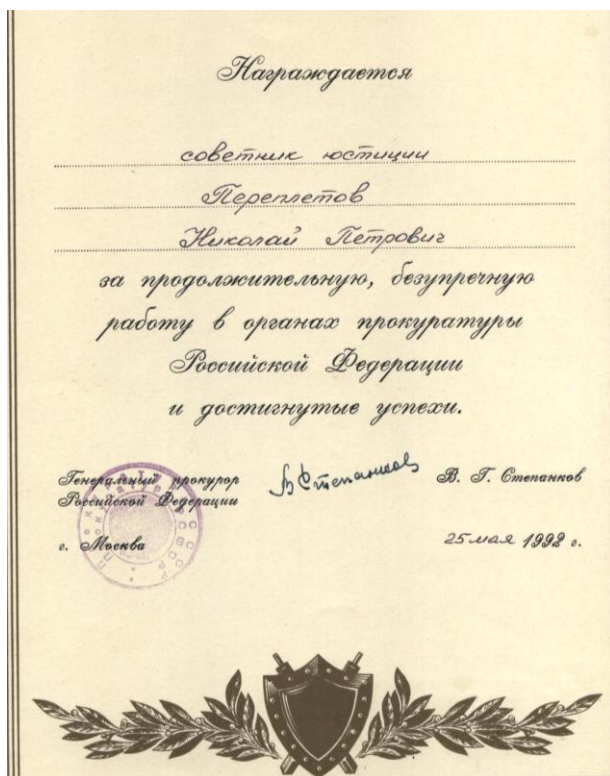 Награждается
советник юстиции
Переплетов
Николай Петрович
за продолжительную, безупречную
работу в органах прокуратуры
Российской Федерации
и достигнутые успехи.
Генеральный прокурор
Российской Федерации
В Степанков
В. Г. Степанков
г. Москва
25 мая 1992 г.